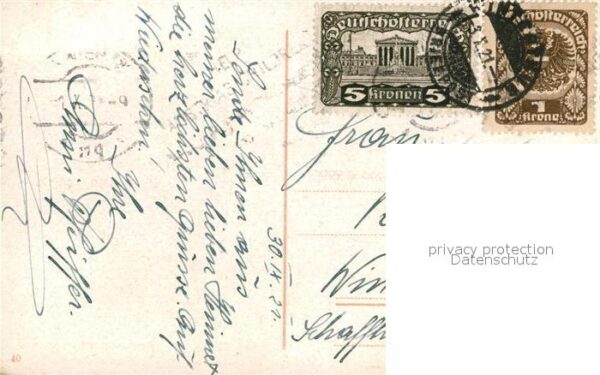 Deutschösterreich
5 Kronen 5
Deutschösterreich
1
Krone
Sende Ihnen aus
meiner lieben lieben Heimat
die herzlichsten Grüsse. Auf
Wiedersehen!
Ihre
Pfeiffer.
30.IX.21.
Frau
Win
Schaffh
privacy protection
Datenschutz
40